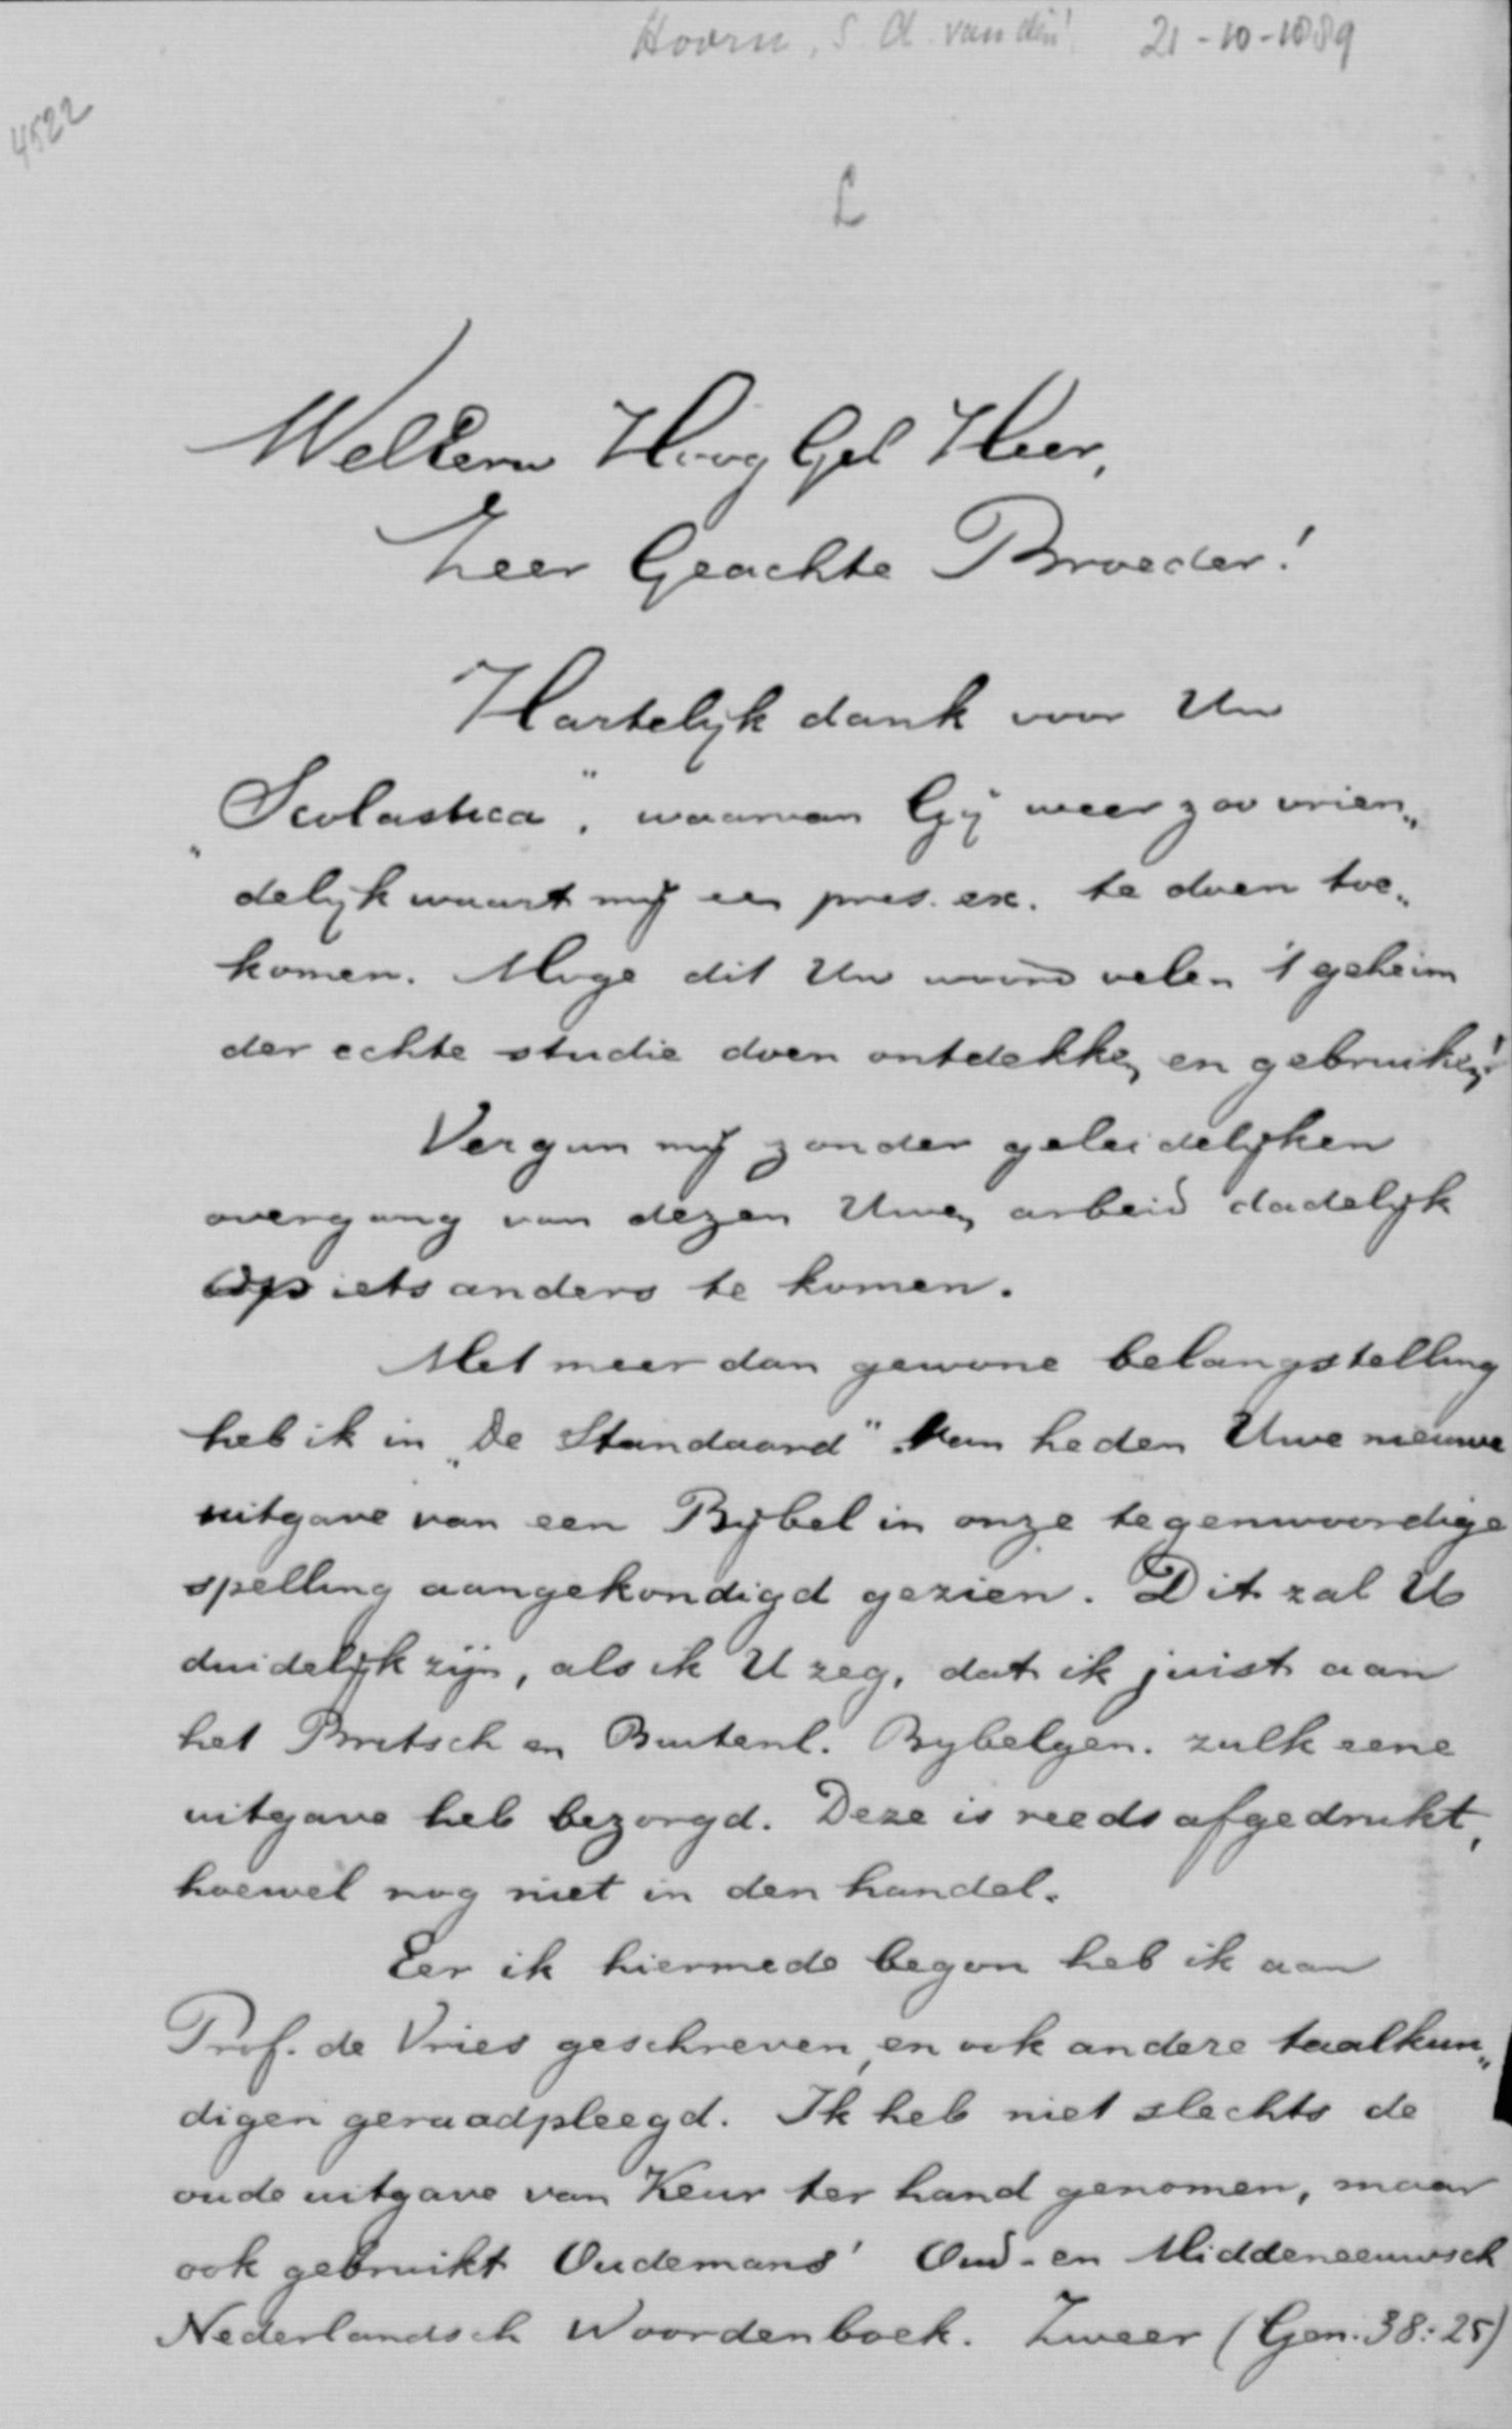 Hoorn, S. A. van den 21-10-1889
4522
L
WelEerw Hoog Gel Heer,
Zeer Geachte Broeder!
Hartelijk dank voor Uw
„Scolastica", waarvan Gij weer zoo vrien„
delijk waart mij een pres. ex. te doen toe„
komen. Moge dit Uw woord velen 't geheim
der echte studie doen ontdekken en gebruiken!
Vergun mij zonder geleidelijken
overgang van dezen Uwen arbeid dadelijk
op iets anders te komen.
Met meer dan gewone belangstelling
heb ik in „De Standaard" van heden Uwe nieuwe
uitgave van een Bijbel in onze tegenwoordige
spelling aangekondigd gezien. Dit zal U
duidelijk zijn, als ik U zeg, dat ik juist aan
het Britsch en Buitenl. Bybelgen. zulk eene
uitgave heb bezorgd. Deze is reeds afgedrukt,
hoewel nog niet in den handel.
Eer ik hiermede begon heb ik aan
Prof. de Vries geschreven, en ook andere taalkun„
digen geraadpleegd. Ik heb niet slechts de
oude uitgave van Keur ter hand genomen, maar
ook gebruikt Oudemans' Oud- en Middeneeuwsch
Nederlandsch Woordenboek. Zweer (Gen. 38:25)